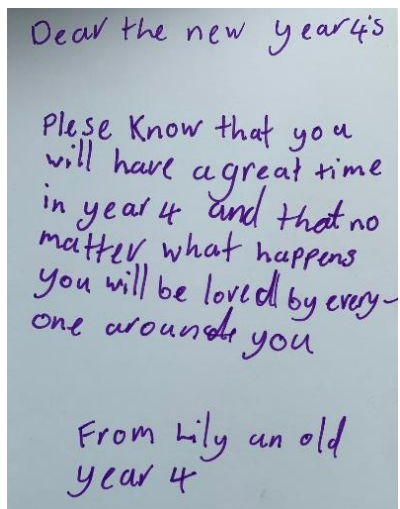 Dear the new year 4's
Plese Know that you
will have a great time
in year 4 and that no
matter what happens
you will be loved by every-
one around you
From Lily an old
year 4